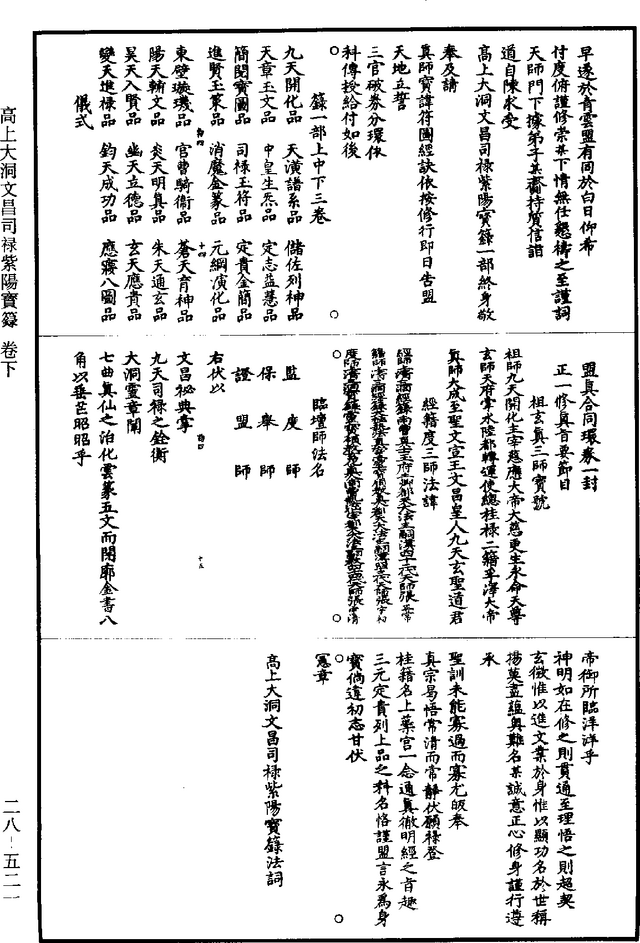 早遂於青雲盟有同於白日仰希
付度俯謹修崇某下情無任懇禱之至謹詞
天師門下據弟子某齋持質信詣
道自陳求受
高上大洞文昌司祿紫陽寶籙一部終身敬
奉及請
真師寶諱符圖經訣依按修行即日告盟
天地立誓
三官破券分環依
科傳授給付如後
籙一部上中下三卷
九天開化品 天潢譜系品 儲佐列神品
天章玉文品 中皇生炁品 定志益慧品
簡閱寶圖品 司祿玉將品 定貴金簡品
進賢玉策品 消魔金篆品 元綱演化品
東壁璇璣品 官曹騎衛品 蒼天育神品
陽天輔文品 炎天明真品 朱天通玄品
昊天入賢品 幽天立德品 玄天應貴品
變天進祿品 鈞天成功品 應寢八圖品
儀式
盟真合同環券一封
正一修真旨要節目
祖玄真三師寶號
祖師九天開化主宰慈應大帝大慈更生永命天尊
玄師天府掌水陸都轉運使總桂祿二籍孚澤大帝
真師大成至聖文宣王文昌皇人九天玄聖道君
經籍度三師法諱
臨壇師法名
監度師
保舉師
證盟師
右伏以
文昌祕典掌
九天司祿之銓衡
大洞靈章闡
七曲真仙之治化雲篆五文而開廓金書八
角以垂芒昭昭乎
帝御所臨洋洋乎
神明如在修之則貫通至理悟之則超契
玄徵惟以進文業於身惟以顯功名於世稱
揚莫盡蘊奧難名某誠意正心修身謹行遵
承
聖訓未能寡過而寡尤皈奉
真宗易悟常清而常靜伏願祿登
桂籍名上蘂宮一念通真徹明經之旨趣
三元定貴列上品之科名恪謹盟言永為身
寶倘違初志甘伏
冤章
高上大洞文昌司祿紫陽寶籙法詞
高上大洞文昌司祿紫陽寶籙 卷下
二八-五二一